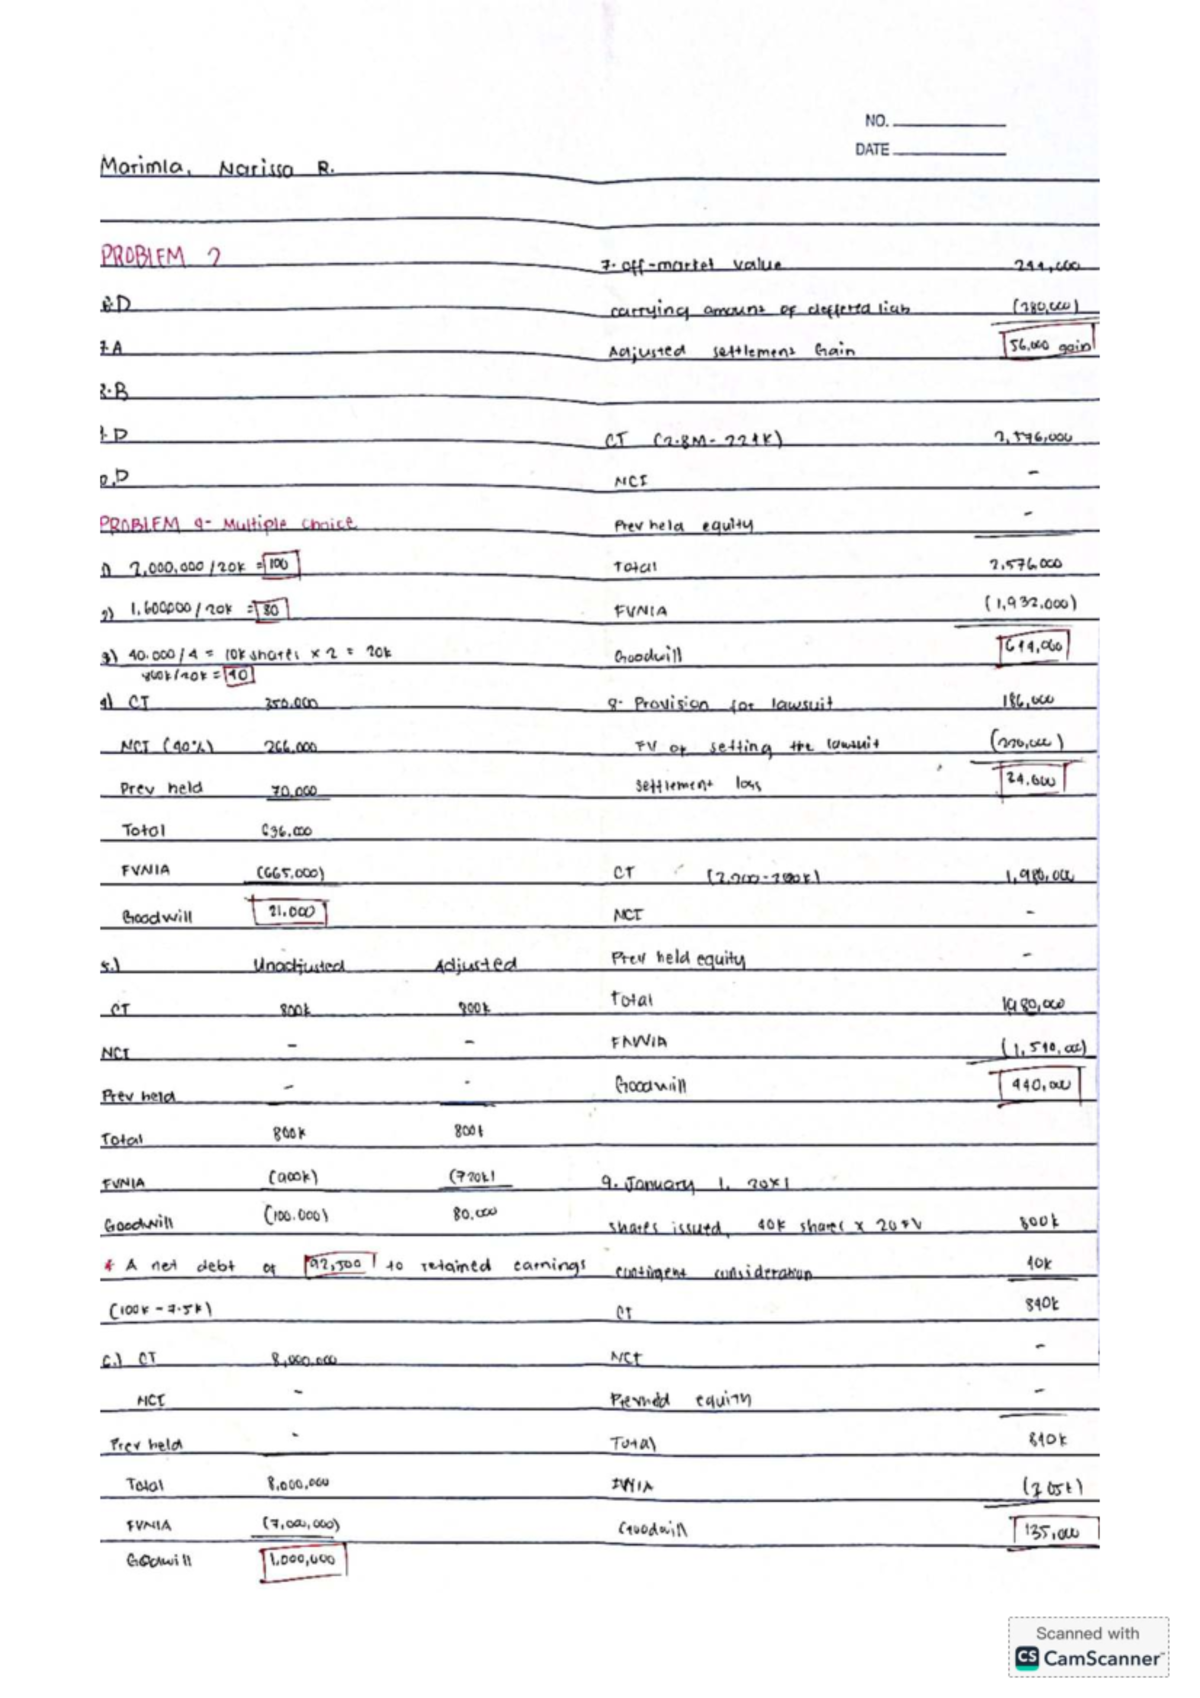 NO.
DATE
Marimla, Narissa R.
PROBLEM 2
D
7.A
3.B
D
D
PROBLEM 4- Multiple choice
1) 2,000,000 / 20k = 100
2) 1,600,000 / 20k = 80
3) 40.000 / 4 = 10k shares x 2 = 20k
800k / 20k = 40
4) CT 350.000
NCI (40%) 266,000
Prev held 70,000
Total 686.000
FVNIA (665.000)
Goodwill 21.000
5.) Unadjusted Adjusted
CT 800k 800k
NCI - -
Prev held - -
Total 800k 800k
FVNIA (900k) (720k)
Goodwill (100.000) 80.000
* A net debt of 92,500 to retained earnings
(100k - 7.5k)
6.) CT 8,000.000
NCI -
Prev held -
Total 8,000,000
FVNIA (7,000,000)
Goodwill 1,000,000
7. off-market value 224,000
carrying amount of deffered liab (280,000)
Adjusted settlement Gain 56,000 gain
CT (2.8M - 224K) 2,576,000
NCI -
Prev held equity -
Total 2,576.000
FVNIA (1,932.000)
Goodwill 644,000
8. Provision for lawsuit 186,000
FV of setting the lawsuit
settlement loss
CT 1,980,000
NCI -
Prev held equity -
Total 1,980,000
FNVIA (1,540,000)
Goodwill 440,000
9. January 1, 20x1
shares issued, 40k shares x 20 FV 800k
contingent consideration 40k
CT 840k
NCI -
Prevheld equity -
Total 840k
FVNIA (705k)
Goodwill 135,000
Scanned with
CS CamScanner